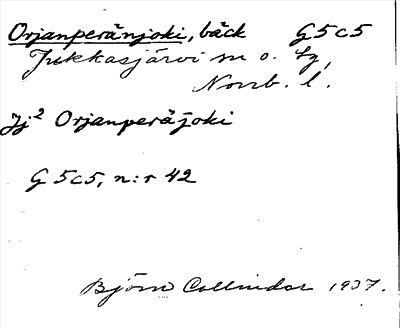 Orjanperänjoki, bäck G5c5
Jukkasjärvi sn o. tg,
Norrb. l.
Jj² Orjanperäjoki
G 5c5, n:r 42
Björn Collinder 1937.